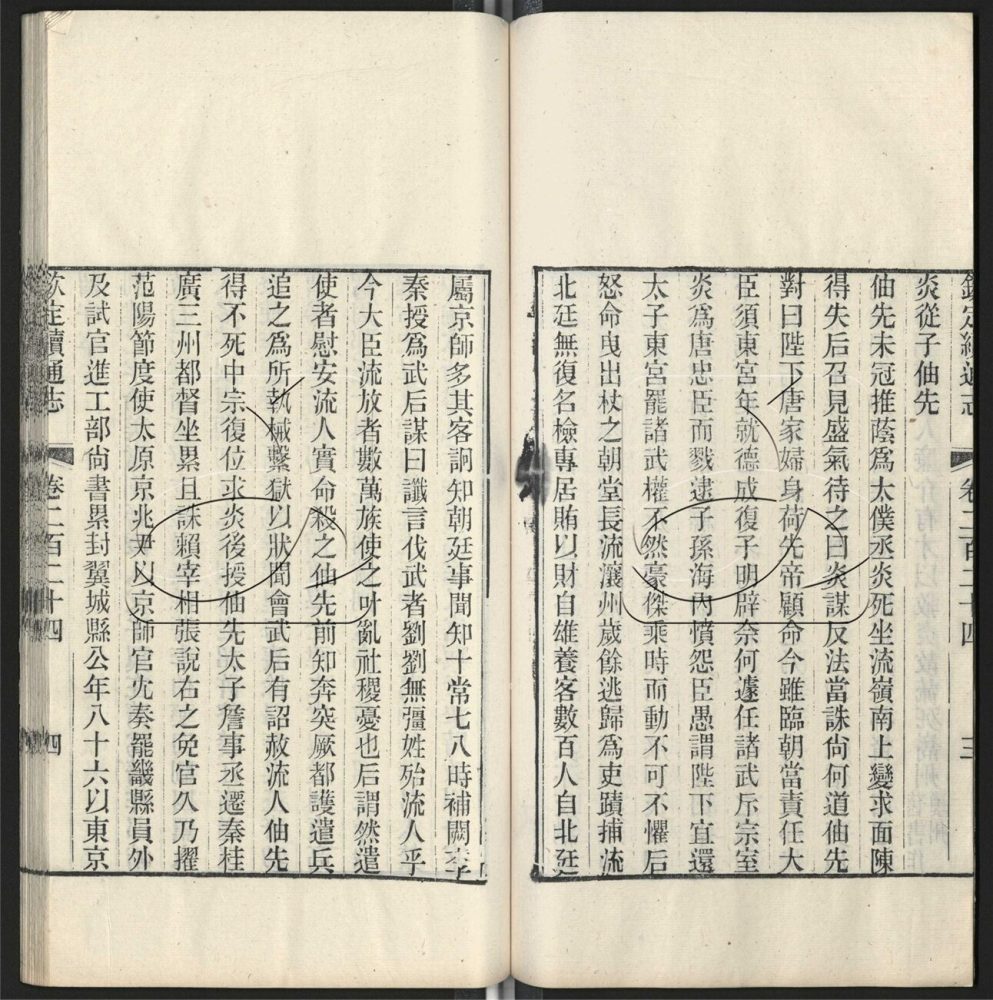 欽定續通志 卷二百二十四 三
炎從子伷先
伷先未冠推蔭爲太僕丞炎死坐流嶺南上變求面陳
得失后召見盛氣待之曰炎謀反法當誅尙何道伷先
對曰陛下唐家婦身荷先帝顧命今雖臨朝當責任大
臣須東宮年就德成復子明辟奈何遽任諸武斥宗室
炎爲唐忠臣而戮逮子孫海內憤怨臣愚謂陛下宜還
太子東宮罷諸武權不然豪傑乘時而動不可不懼后
怒命曳出杖之朝堂長流瀼州歲餘逃歸爲吏蹟捕流
北廷無復名檢專居賄以財自雄養客數百人自北廷
屬京師多其客詗知朝廷事聞知十常七八時補闕李
秦授爲武后謀曰讖言伐武者劉劉無彊姓殆流人乎
今大臣流放者數萬族使之叶亂社稷憂也后謂然遣
使者慰安流人實命殺之伷先前知奔突厥都護遣兵
追之爲所執械繫獄以狀聞會武后有詔赦流人伷先
得不死中宗復位求炎後授伷先太子詹事丞遷秦桂
廣三州都督坐累且誅賴宰相張說右之免官久乃擢
范陽節度使太原京兆尹以京師官冗奏罷畿縣員外
及試官進工部尙書累封翼城縣公年八十六以東京
欽定續通志 卷二百二十四 四